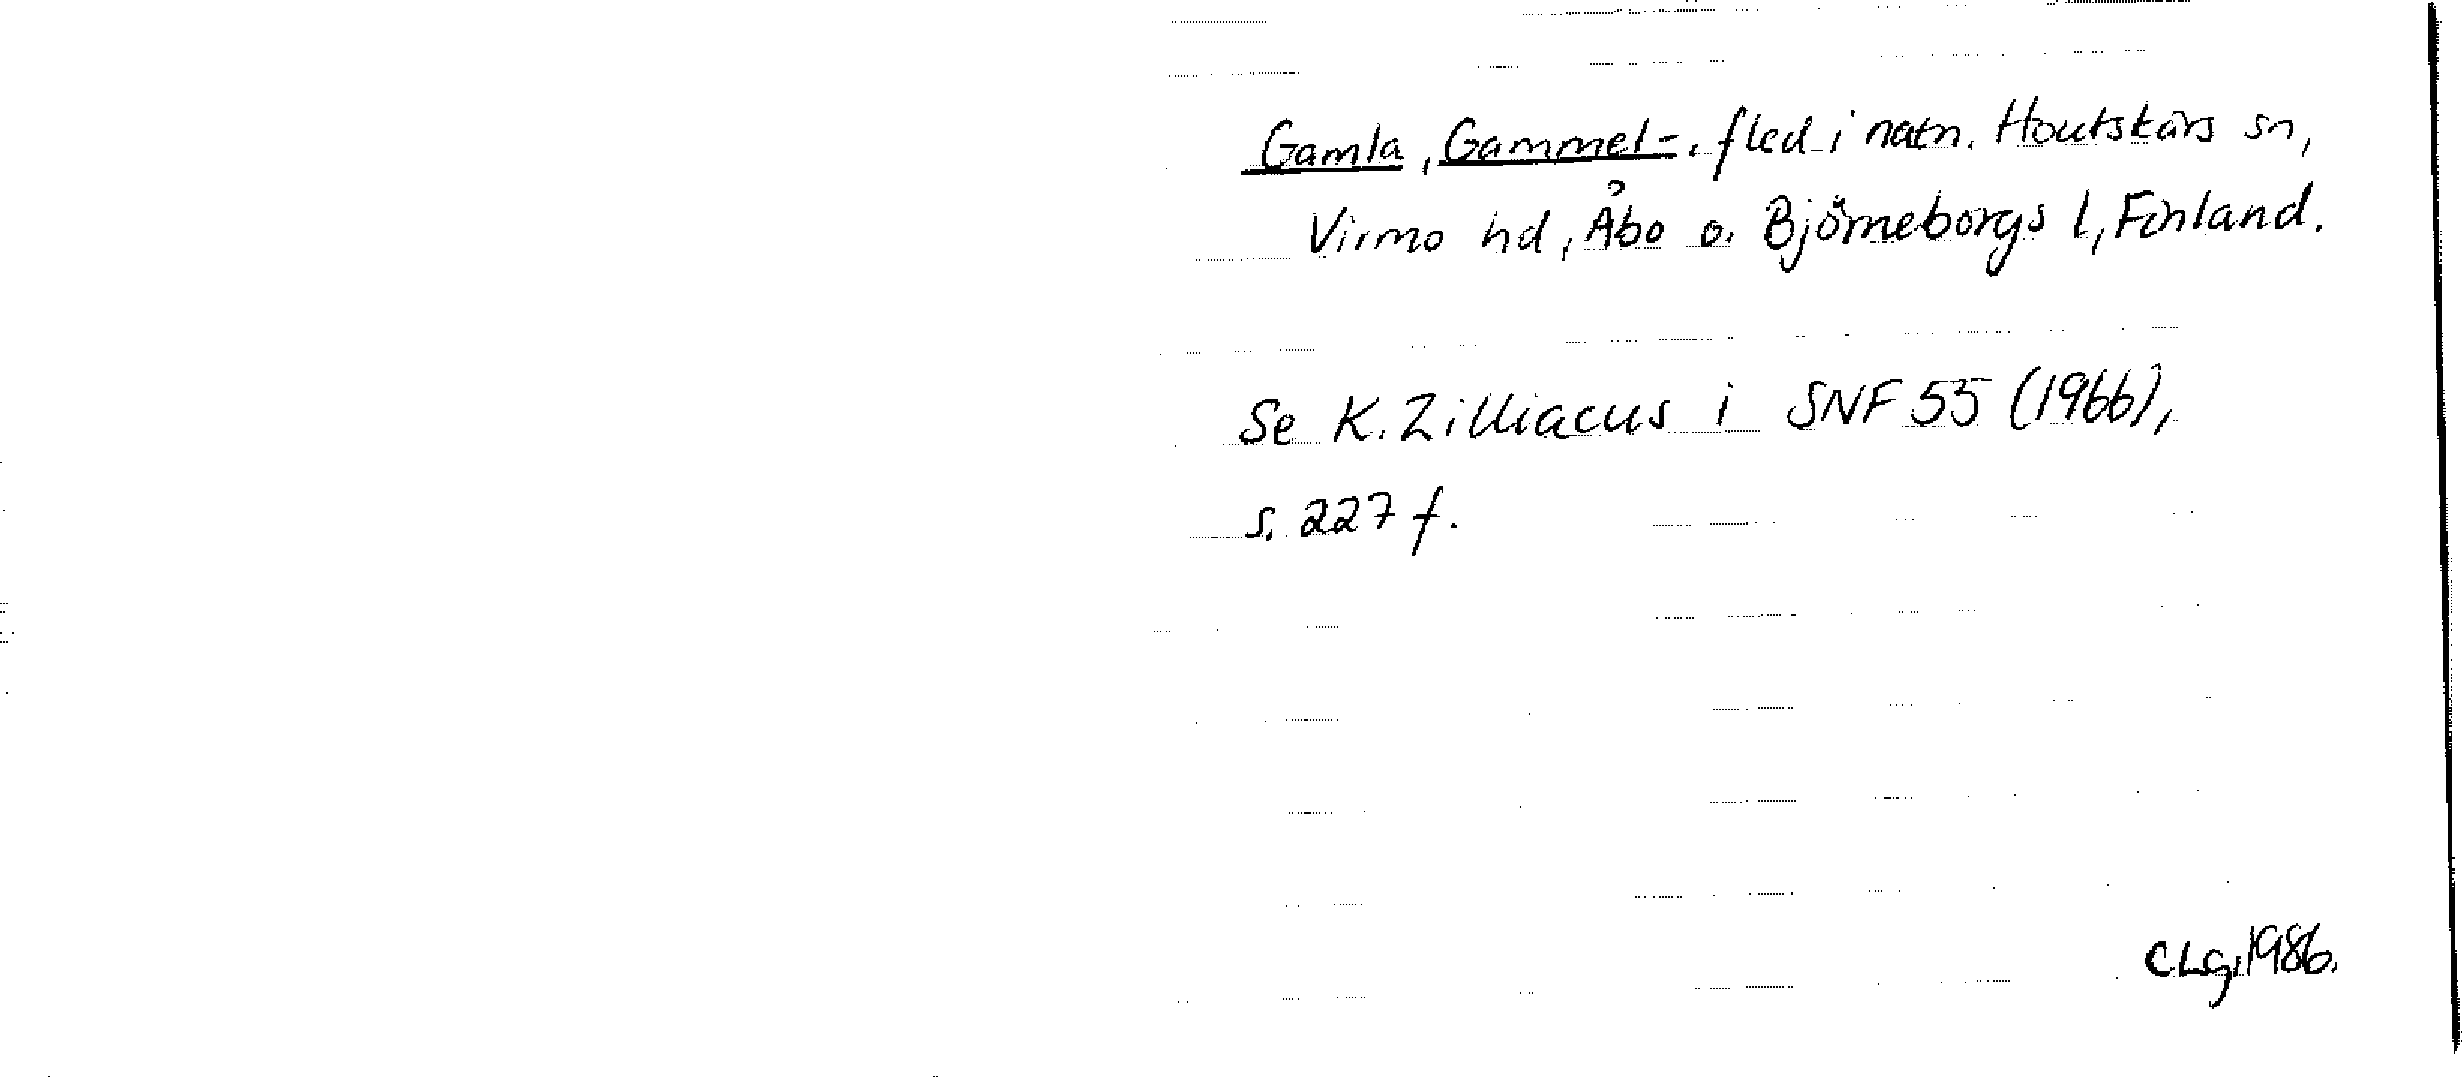 Gamla, Gammel-, fled i natn. Houtskärs sn,
Virmo hd, Åbo o. Björneborgs l, Finland.
Se K. Zilliacus i SNF 55 (1966),
s. 227 f.
CLg, 1986.